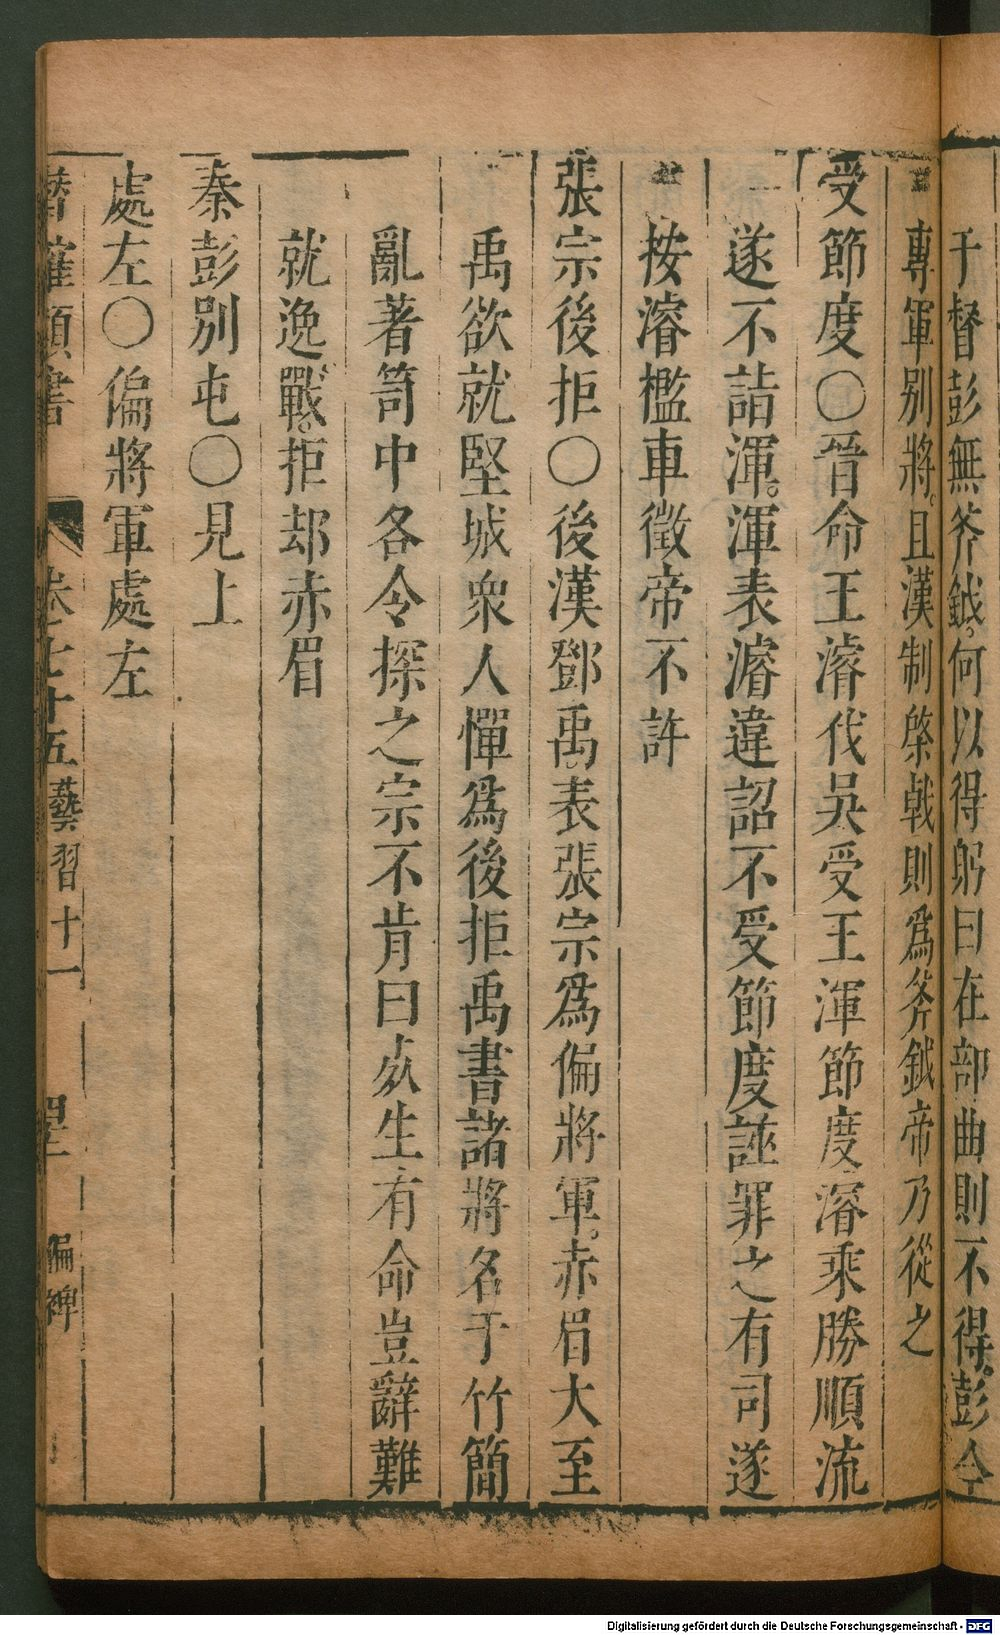 于督彭無斧鉞何以得躬曰在部曲則不得彭今
專軍别將且漢制棨戟則爲斧鉞帝乃從之
受節度〇晉命王濬伐吳受王渾節度濬乘勝順流
遂不詣渾渾表濬違詔不受節度誣罪之有司遂
按濬檻車徵帝不許
張宗後拒〇後漢鄧禹表張宗爲偏將軍赤眉大至
禹欲就堅城衆人憚爲後拒禹書諸將名于竹簡
亂著笥中各令探之宗不肯曰死生有命豈辭難
就逸戰拒却赤眉
秦彭别屯〇見上
處左〇偏將軍處左
潛確類書 卷之七十五 藝習十一 四二 偏裨
Digitalisierung gefördert durch die Deutsche Forschungsgemeinschaft - DFG